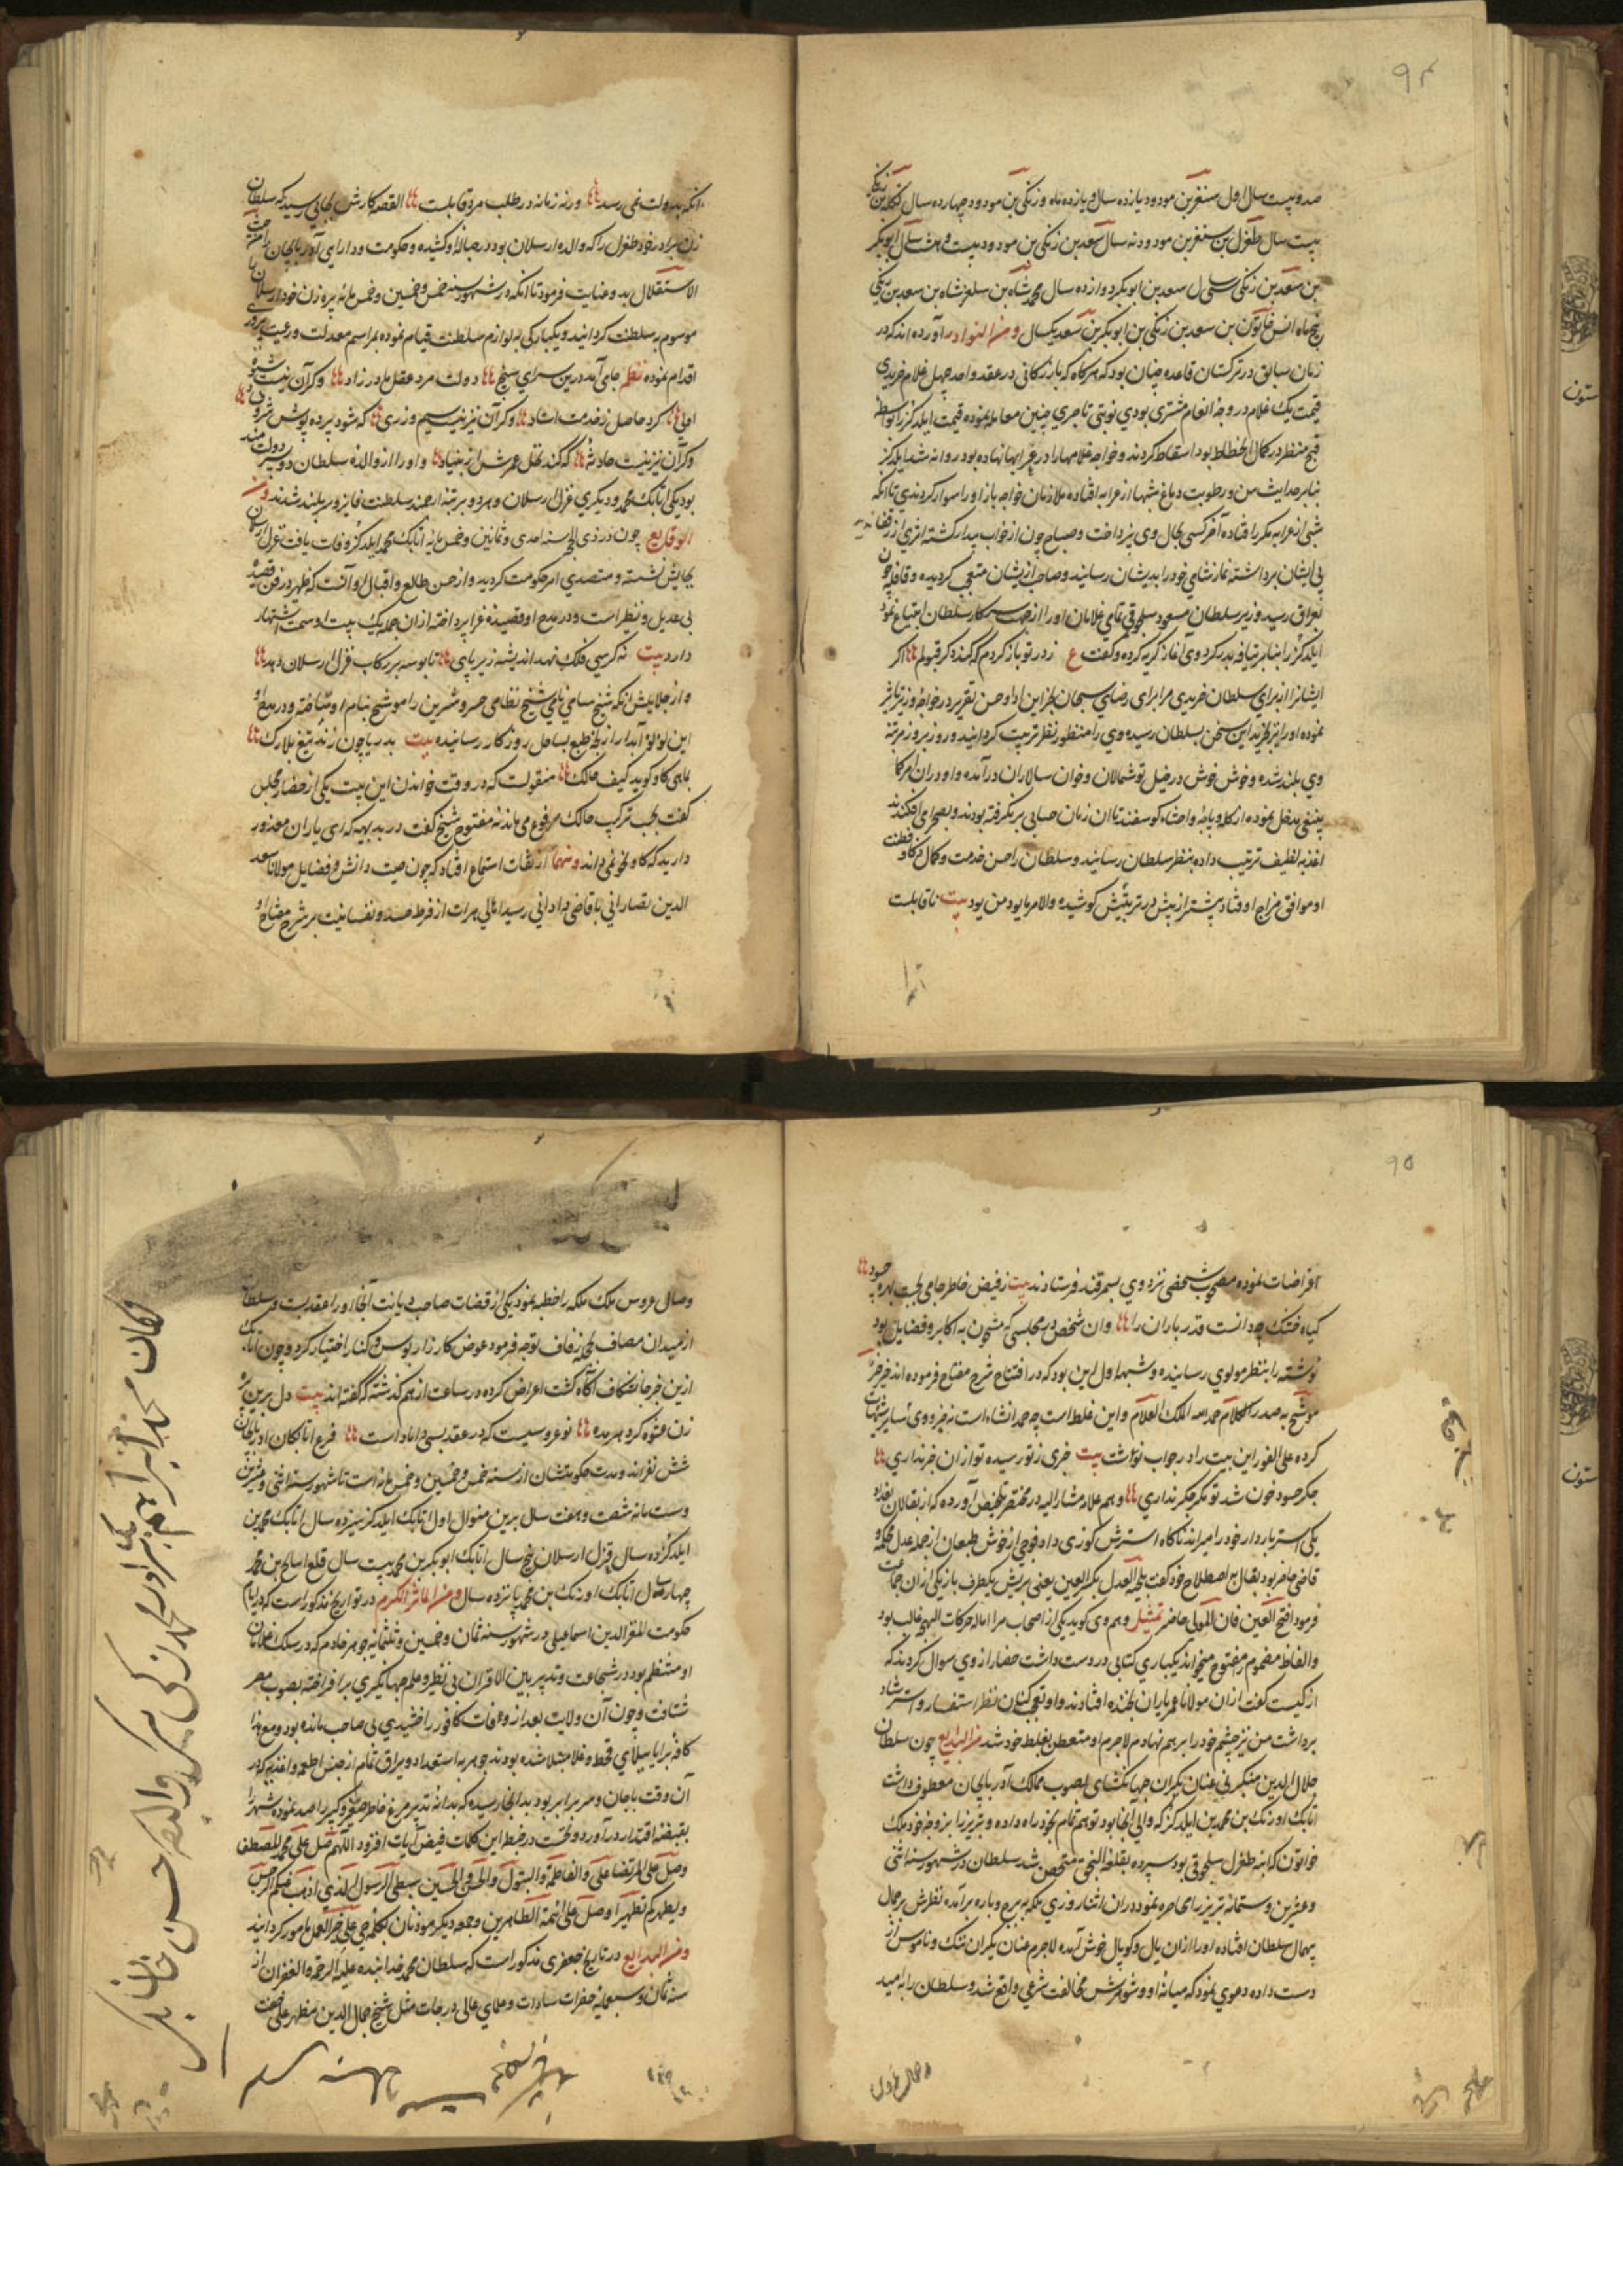 ۹۴
صد و بیست سال اول سنقر بن مودود یازده سال و یازده ماه و زنگی بن مودود چهارده سال تکله بن زنگی
بیست سال طغرل بن سنقر بن مودود نه سال سعد بن زنگی بن مودود بیست و هشت سال ابوبکر
بن سعد بن زنگی سی سال سعد بن ابوبکر دوازده سال محمد شاه بن سلغر شاه بن سعد بن زنگی
پنج ماه انس خاتون بن سعد بن زنگی بن ابوبکر بن سعد یکسال و من النوادر آورده اند که در
زمان سابق در ترکستان قاعده چنان بود که هرگاه که بازرگانی در عقد واحد چهل غلام خریدی
قیمت یک غلام در وجه انعام مشتری بودی نوبتی تاجری چنین معامله نموده قیمت ایلدکز را بواسطه
قبح منظر و در کمال انحطاط بود اسقاط کردند و خواجه غلامها را در عرابها نهاده بود روانه شد ایلدکز
بنابر حداثت سن و رطوبت دماغ شبها از عرابه افتاده ملازمان خواجه باز او را سوار کردندی تا انکه
شبی از عرابه مکرر افتاده آخر کسی بحال وی نپرداخت و صباح چون از خواب بیدار گشته اثری از رفقا ندید
پی ایشان برداشته نماز شامی خود را بدیشان رسانید و صاحب ایشان متعجب گردیده و قافله چون
بعراق رسید وزیر سلطان مسعود سلجوقی تمامی غلامان او را از جهت سرکار سلطان ابتیاع نمود
ایلدکز را بنابر قیافه بد رد کرد وی آغاز گریه کرده و گفت ع ز در تو باز گردم که کند دگر قبولم اگر
ایشان را از برای سلطان خریدی مرا برای رضای سبحان بخر این ادا و حسن تقریر در خواجه وزیر تاثیر
نموده او را نیز خرید این سخن بسلطان رسیده وی را منظور نظر تربیت گردانید و روز بروز مرتبه
وی بلند شده و خوش خوش در خیل توشمالان و خوان سالاران درآمده و او در ان امر کما
ینبغی مدخل نموده از کله و پاچه و احشاء گوسفند تا ان زمان حسابی بر نگرفته بودند و بصحرا می افکندند
اغذیه لطیف ترتیب داده بنظر سلطان رسانید و سلطان را حسن خدمت و کمال ذکا و فطنت
او موافق مزاج اوفتاد پیشتر از پیش در تربیتش کوشیده والامر ما بود من بود بیت تا قابلیت
آنرا
انکه بدولت نمی رسد ورنه زمانه در طلب مرد قابلست القصه کارش بجائی رسید که سلطان
زن برادر خود طغرل را که والده ارسلان بود در حباله او کشیده و حکومت و دارایی آذربایجان را من حیث
الاستقلال بدو عنایت فرمود تا انکه در شهور سنه خمس و خمسین و خمسمائه پسر زن خود ارسلان را
موسوم به سلطنت گردانید و یکبارگی به لوازم سلطنت قیام نموده بمراسم معدلت و رعیت پروری
اقدام نموده نظم جای آمد درین سرای سپنج دولت مرد عقل مادرزاد وگر آن نیست شیوه
اولی کرد حاصل ز خدمت استاد وگر آن نیز نیست سیم و زری که شود پرده پوش
وگر آن نیز نیست حادثه که کند نخل عمرش از بنیاد و او را از والده سلطان دو پسر دولتمند
بود یکی اتابک محمد و دیگری غزل ارسلان و هر دو برتبه ارجمند سلطنت فایز و سربلند شدند و من
الوقایع چون در ذی الحجه سنه احدی و ثمانین و خمسمائه اتابک محمد ایلدکز وفات یافت غزل ارسلان
بجایش نشسته و متصدی امر حکومت گردید و از حسن طالع و اقبال او آنست که ظهیر در فن قصیده
بی عدیل و نظیر است و در مدح او قصیده غرا پرداخته از ان جمله یک بیت او سمت اشتهار
دارد بیت نه کرسی فلک نهد اندیشه زیر پای تا بوسه بر رکاب غزل ارسلان دهد
و از جلایلش انکه شیخ سامی نامی شیخ نظامی خسرو شیرین را موشح بنام او ساخته و در مدح او
این لولو آبدار از لجه طبع بساحل روزگار رسانیده بیت بدریا چون زند تیغ بلارک
بماهی گاو گوید کیف حالک منقولست که در وقت خواندن این بیت یکی از حضار مجلس
گفت بحسب ترکیب حالک مرفوع می ماند نه مفتوح شیخ گفت در بدیهه که ای یاران معذور
دارید که گاو نحو نمی داند و منها از ثقات استماع افتاد که چون صیت دانش و فضایل مولانا سعد
الدین بقصارانی با قاضی دادانی رسید اهالی هرات از فرط حسد و نفسانیت بر شرح مفتاح او
۹۵
اقراضات نموده مصحوب شخصی نزد وی بسمرقند فرستادند بیت ز فیض خاطر جامی بجست بهره حسود
گیاه خشک چه دانست قدر باران را وان شخص در مجلسی که مشحون به اکابر و فضایل بود
نوشته را بنظر مولوی رسانیده و شبهه اول این بود که در افتتاح شرح مفتاح فرموده اند خیر خبر
موشح به صدر الکلام حمد الله الملک العلام و این غلط است چه حمد انشاء است نه خبر و وی سایر شبهات
کرده علی الفور این بیت را در جواب نوشت بیت خری ز تو رسیده تو از ان خر نداری
جگر حسود خون شد تو مگر جگر نداری و هم علامه مشارالیه در مختصر تلخیص آورده که از بقالان بغداد
یکی استر باردار خود را میراند ناگاه استرش گوزی داد فوجی از خوش طبعان از جمله عدل محکمه
قاضی حاضر بود بقال بر اصطلاح خود گفت بلحیة العدل بکسر العین یعنی بریش یکطرف بار یکی از ان جماعت
فرمود افتح العین فان المولی حاضر تمثیل و هم وی گوید یکی از اصحاب مرا اماله حرکات الهجه غالب بود
و الفاظ مضموم را مفتوح میخواند یکباری کتابی در دست داشت حضار از وی سوال کردند که
از کیست گفت از ان مولانا عمر یاران بخنده افتادند و او تعجب کنان نظر استفسار و استرشاد
برداشت من نیز چشم خود را بر هم نهادم لاجرم او متعطن بغلط خود شد من البدایع چون سلطان
جلال الدین منکبرنی عنان یکران جهانگشای بصوب ممالک آذربایجان معطوف داشت
اتابک اوزبک بن محمد بن ایلدکز که والی آنجا بود توهم تمام بخود راه داده و تبریز را بزوجه خود ملک
خواتون که ابنه طغرل سلجوقی بود سپرده بقلعه النجق متحصن شد سلطان در شهور سنه اثنی
و عشرین و ستمائه تبریز را محاصره نموده در ان اثنا روزی ملکه به برج و باره برآمده نظرش بر جمال
بیهمال سلطان افتاده او را از ان یال و کوپال خوش آمده لاجرم عنان یکران ننگ و ناموس از
دست داده دعوی نمود که میانه او و شوهرش مخالفت شرعی واقع شد و سلطان را به امید
وصال عروس
وصال عروس ملک ملکه را خطبه نمود یکی از قضات صاحب دیانت آنجا او را عقد بست و سلطان
از میدان مصاف بحجله زفاف توجه فرمود عوض کارزار بوس و کنار اختیار کرد و چون اتابک
ازین خبر جانگذار آگاه گشت اعراض کرده در ساعت از هم گذشته که گفته اند بیت دل برین پیره
زن عشوه گر دهر مده نوعروسیست که در عقد بسی داماد است فرع اتابکان آذربایجان
شش نفراند و مدت حکومتشان از سنه خمس و خمسین و خمسمائه است تا شهور سنه اثنی و عشرین
و ستمائه شصت و هفت سال برین منوال اول اتابک ایلدکز سیزده سال اتابک محمد بن
ایلدکز ده سال قزل ارسلان پنج سال اتابک ابوبکر بن محمد بیست سال قلع اسالح بن محمد
چهار سال اتابک اوزبک بن محمد پانزده سال و من الماثر الکرم در تواریخ مذکور است که در ایام
حکومت المعزالدین اسماعیلی در شهور سنه ثمان و خمسین و ثلثمائه جوهر خادم که در سلک غلامان
او منتظم بود در شجاعت و تدبیر بین الاقران بی نظیر و علم جهانگیری برافراخته بصوب مصر
شتافت و چون آن ولایت بعد از وفات کافور اخشیدی بی صاحب مانده بود و مع هذا
کافه برایا ببلای قحط و غلا مبتلا شده بودند جوهر به استعداد و یراق تمام از جنس اطعمه و اغذیه که در
آن وقت با جان و سر برابر بود بدانجا رسیده که بدانه تدبیر مرغ خاطر صغیر و کبیر را صید نموده شهر را
بقبضه اقتدار درآورد و نخست در خطبه این کلمات فیض آیات افزود اللهم صل علی محمد المصطفی
وصل علی المرتضا علی والفاطمه والبتول والحسن والحسین سبطی الرسول الذی اذهب عنکم الرجس
ویطهرکم تطهیرا وصل علی ائمة الطاهرین و جمعه دیگر موذنان بکلمه حی علی خیر العمل مامور گردانید
و من البدایع در تاریخ جعفری مذکور است که سلطان محمد خدابنده علیه الرحمة والغفران انه
سنه ثمان و سبعمائه حضرات سادات و علمای عالی درجات مثل شیخ جمال الدین مطهر علی صفت
ستون
ستون